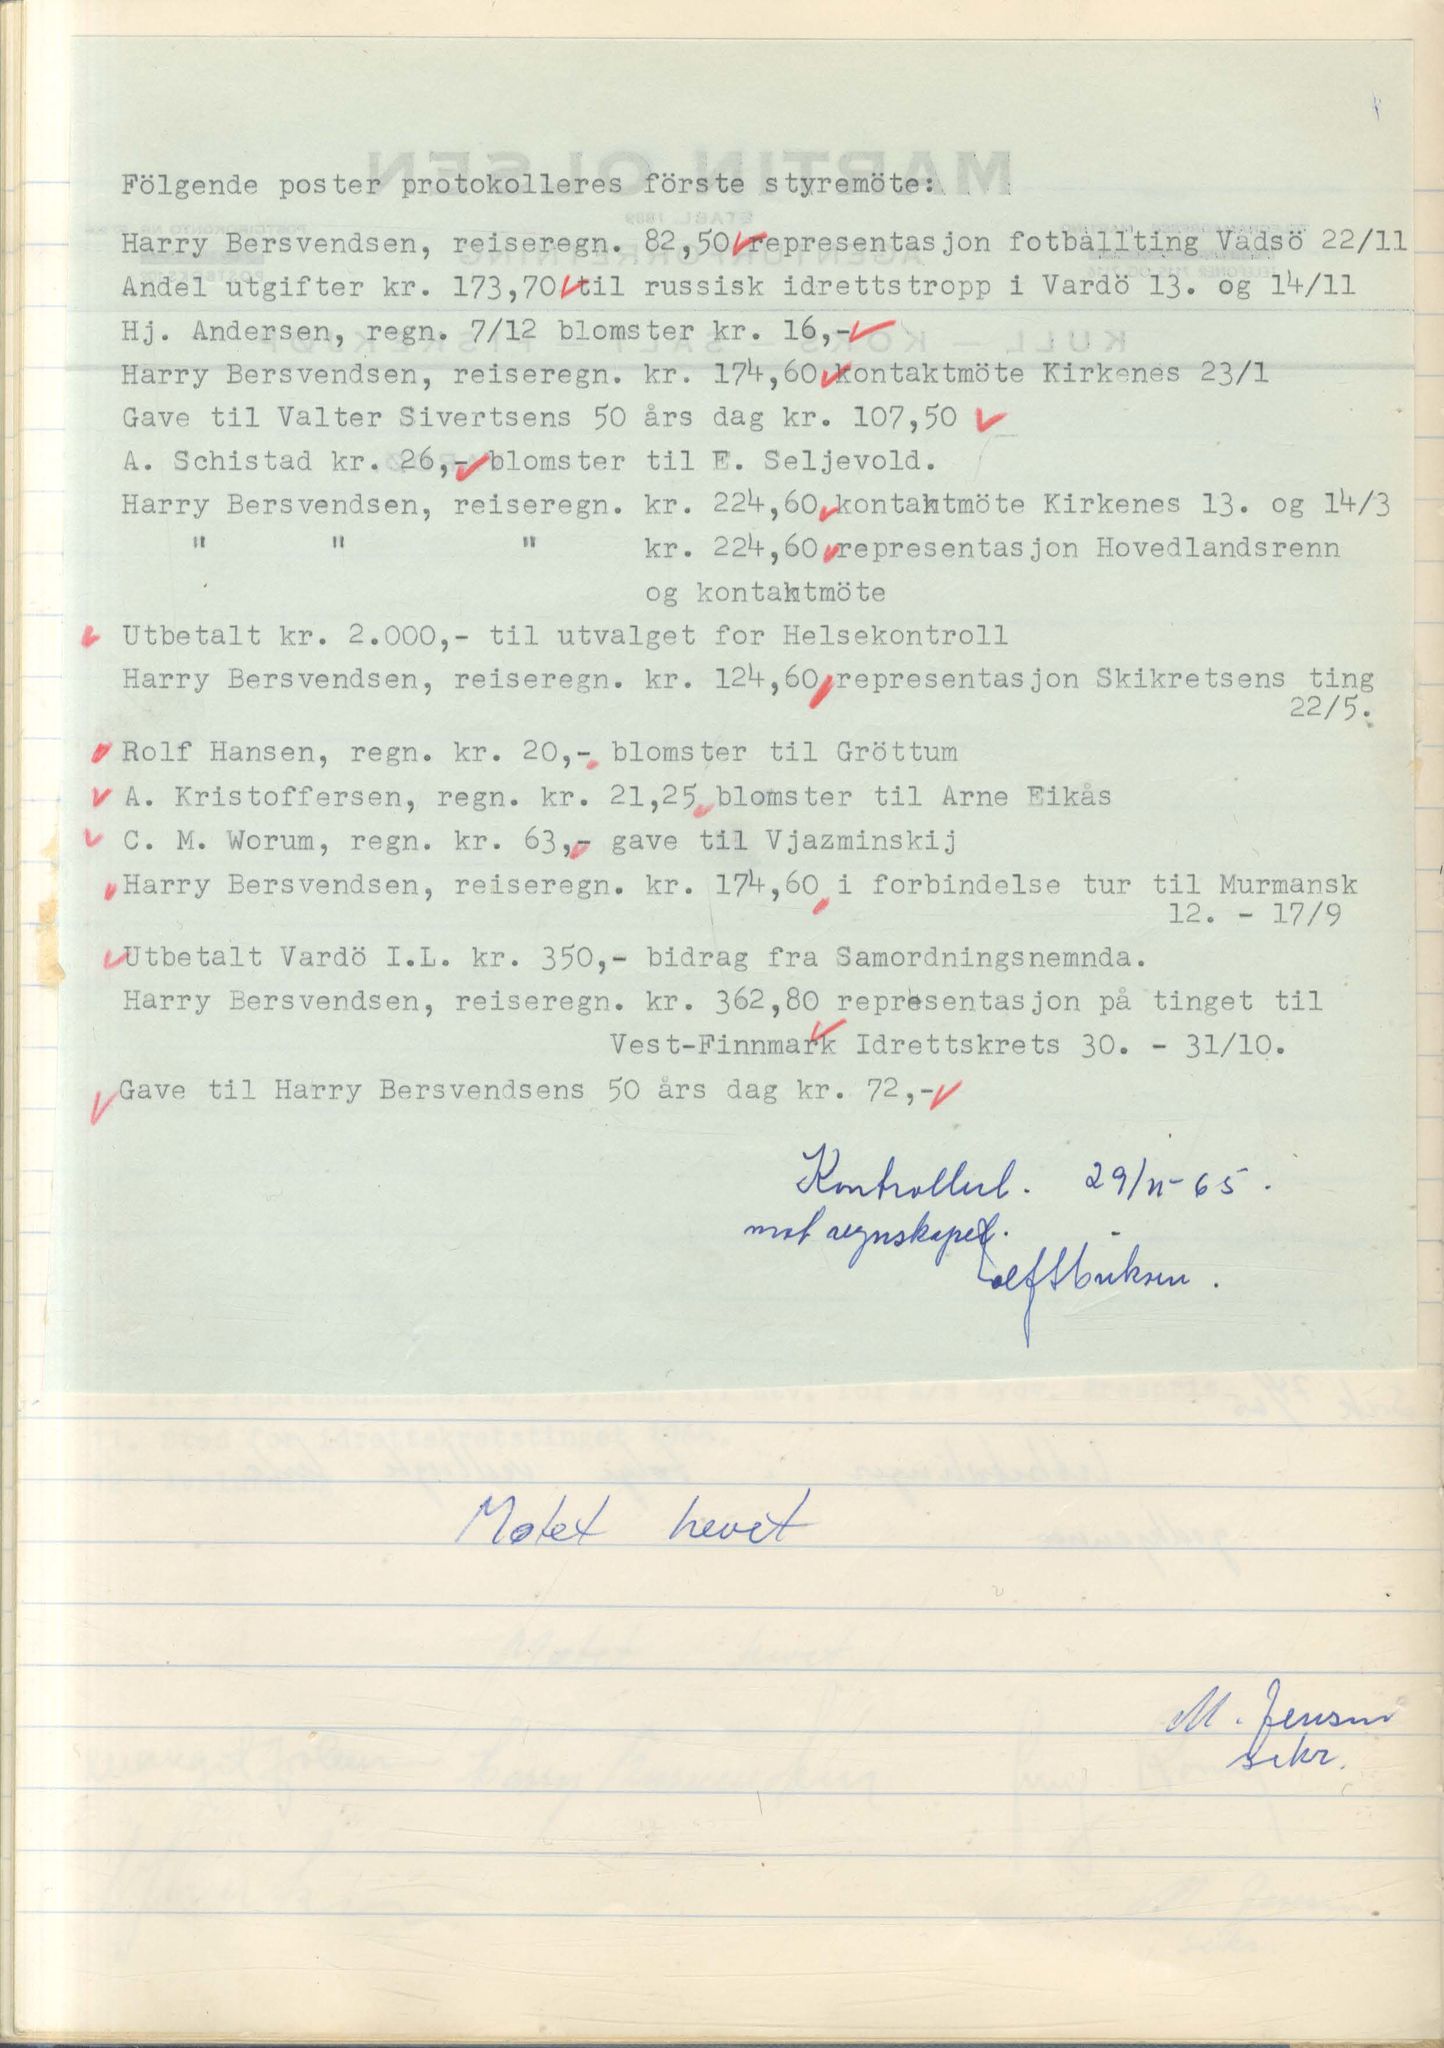 Fölgende poster protokolleres förste styremöte:
Harry Bersvendsen, reiseregn. 82,50 representasjon fotballting Vadsö 22/11
Andel utgifter kr. 173,70 til russisk idrettstropp i Vardö 13. og 14/11
Hj. Andersen, regn. 7/12 blomster kr. 16,-
Harry Bersvendsen, reiseregn. kr. 174,60 kontaktmöte Kirkenes 23/1
Gave til Valter Sivertsens 50 års dag kr. 107,50
A. Schistad kr. 26,- blomster til E. Seljevold.
Harry Bersvendsen, reiseregn. kr. 224,60 kontaktmöte Kirkenes 13. og 14/3
" " " kr. 224,60 representasjon Hovedlandsrenn
og kontaktmöte
Utbetalt kr. 2.000,- til utvalget for Helsekontroll
Harry Bersvendsen, reiseregn. kr. 124,60 representasjon Skikretsens ting
22/5.
Rolf Hansen, regn. kr. 20,- blomster til Gröttum
A. Kristoffersen, regn. kr. 21,25 blomster til Arne Eikås
C. M. Worum, regn. kr. 63,- gave til Vjazminskij
Harry Bersvendsen, reiseregn. kr. 174,60 i forbindelse tur til Murmansk
12. - 17/9
Utbetalt Vardö I.L. kr. 350,- bidrag fra Samordningsnemnda.
Harry Bersvendsen, reiseregn. kr. 362,80 representasjon på tinget til
Vest-Finnmark Idrettskrets 30. - 31/10.
Gave til Harry Bersvendsens 50 års dag kr. 72,-
Kontrollert. 29/11-65.
mot regnskapet.
Møtet hevet
M. Jensen
sekr.